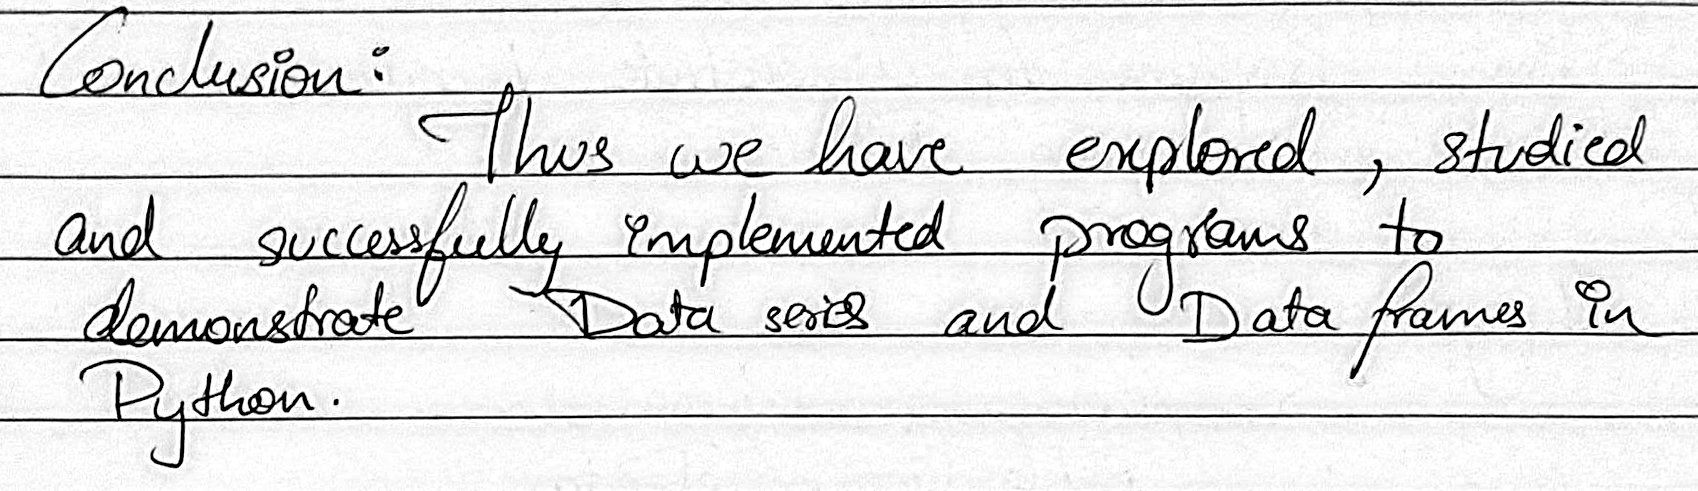 Conclusion:
Thus we have explored, studied
and successfully implemented programs to
demonstrate Data series and Data frames in
Python.